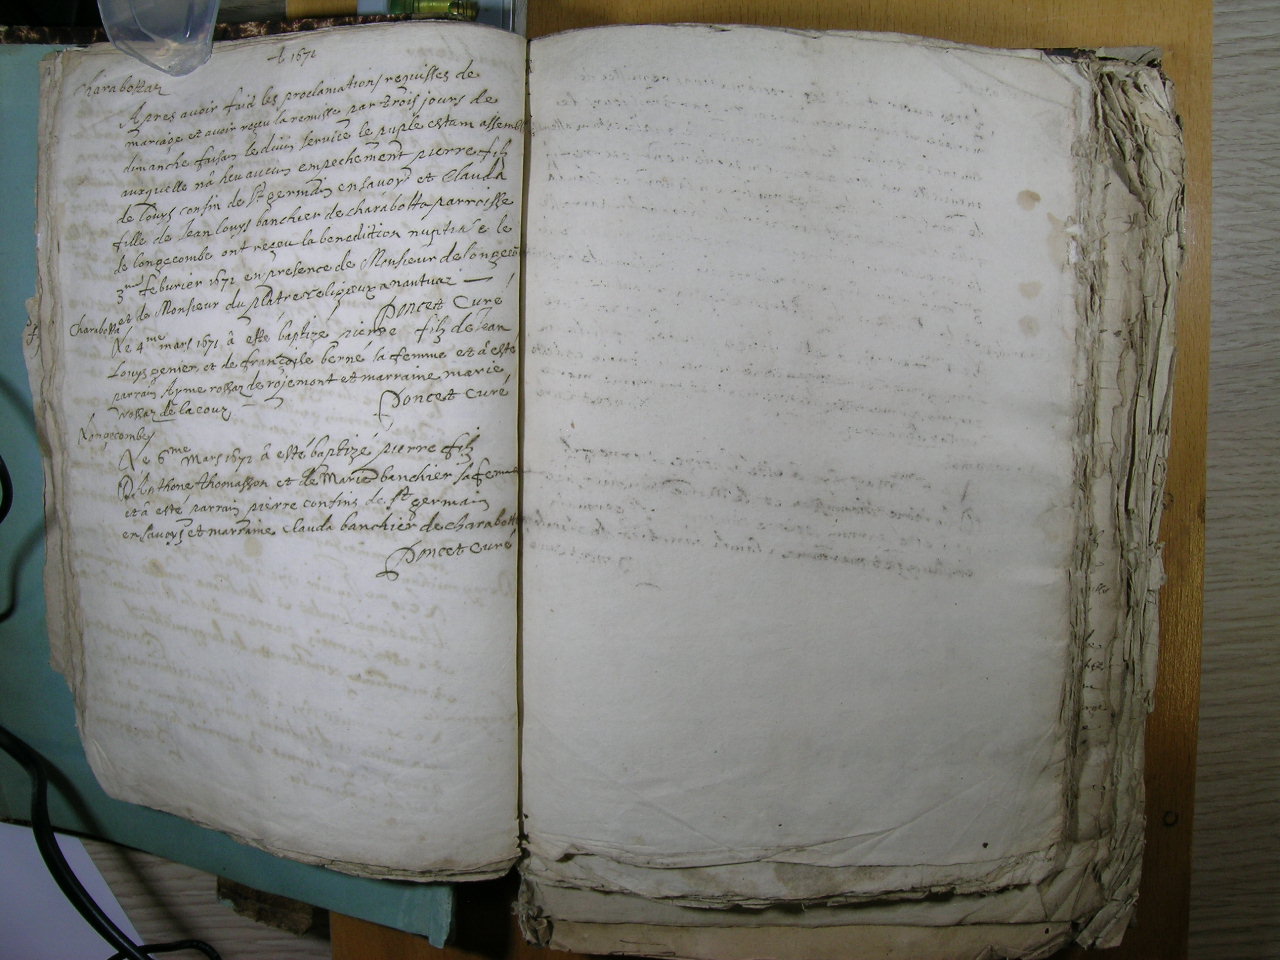 1671
Charabottaz
Apres avoir faict les proclamations requisses de
mariage et avoir reçu la remisse par trois jours de
dimanche faisan le divin service le puple estam assem
auxquelle nâ heu aucun empechement pierre filz
de Louys confin de st germain en savoye et Clauda
fille de Jean Louys banchier de charabotta parroisse
de longecombe ont reçou la benediction nuptiale le
3me feburier 1671 en presence de Monsieur de longecô
et de Monsieur du platre religieux a nantuaz
Poncet Curé
Charabotta
Le 4me mars 1671 â esté baptize pierre filz de Jean
Louys genier et de françoise berné sa femme et â esté
parrain Ayme rossaz de rojemont et marraine marie
rossaz de la cour
Poncet Curé
Longecombes
Le 6me Mars 1671 â esté baptizé pierre filz
D'Anthone thomasson et de Marie banchier sa femme
et â esté parrain pierre confins de st germain
en savoys et marraine Clauda banchier de charabott
Poncet Curé